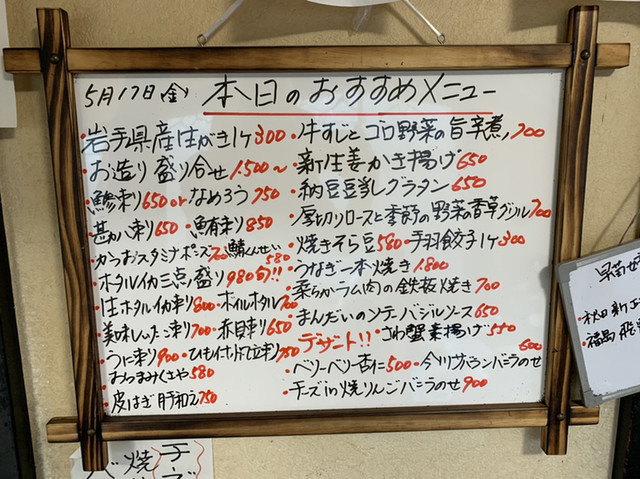 5月17日(金) 本日のおすすめメニュー
・岩手県産生がき1ケ300
・お造り盛り合せ1.500~
・鯵刺り650orなめろう750
・甚カハ刺り650 ・鮪刺り850
・かつおスタミナポンズ700 鯖くんせい580
・ホタルイカ三点盛り980旬!!
・生ホタルイカ刺り800 ・ボイルホタル700
・美味しめさば刺り700 ・赤貝刺り650
・うに刺り900 750
・おつまみくさや580
・皮はぎ肝和え750
・牛すじとゴロ野菜の旨辛煮700
・新生姜かき揚げ650
・納豆豆乳グラタン650
・厚切りロースと季節の野菜の香草グリル700
・焼きそら豆580 ・手羽餃子1ケ300
・うなぎ一本焼き1.800
・柔らかラム肉の鉄板焼き700
・まんだいのソテーバジルソース650
・デザート!! ・さわ蟹素揚げ550
・ベリーベリー杏仁500 ・今川バウンバニラのせ600
・チーズin焼りんごバニラのせ900
早苗
・秋田
・福島